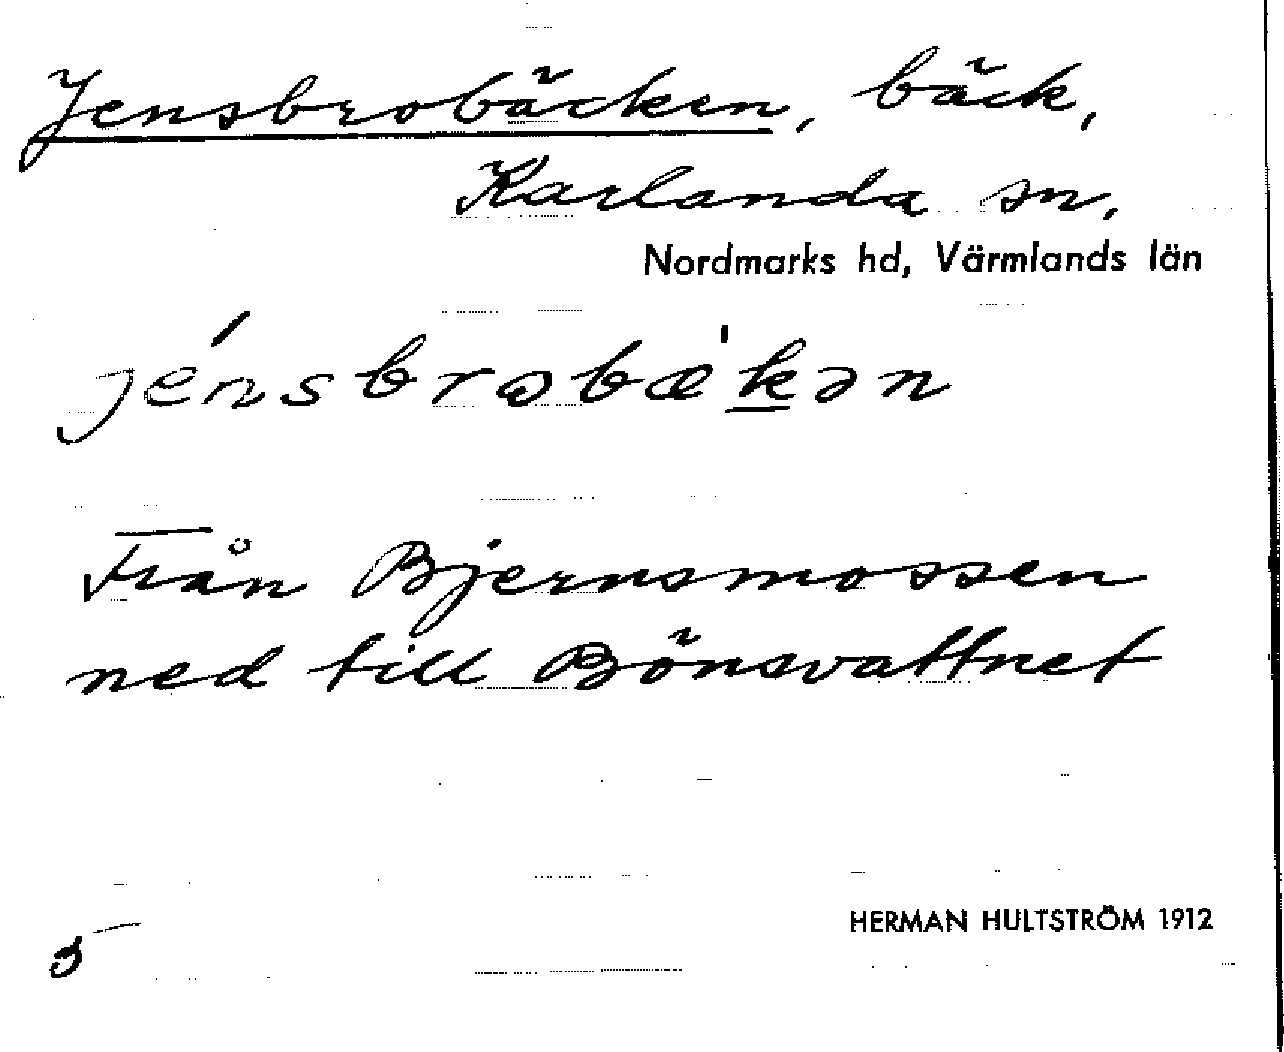 Jensbrobäcken, bäck,
Karlanda sn,
Nordmarks hd, Värmlands län
jénsbrobæ̀kən
Från Bjernsmossen
ned till Bönsvattnet
HERMAN HULTSTRÖM 1912